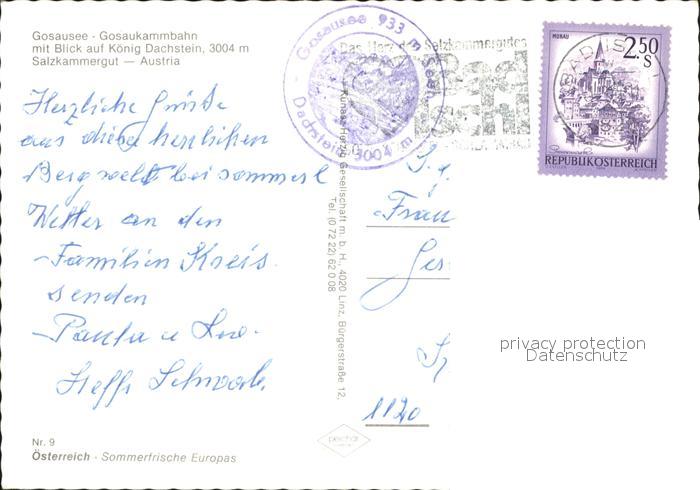 Gosausee - Gosaukammbahn
mit Blick auf König Dachstein, 3004 m
Salzkammergut — Austria
Herzliche Grüße
aus dieser herrlichen
Bergwelt bei sommerl
Wetter an den
Familien Kreis.
senden
Paula u
Steffi
Nr. 9
Österreich - Sommerfrische Europas
Gosausee 933 m Seeh.
Dachstein 3004 m
Das Herz des Salzkammergutes
Bad
Ischl
BAD IS
MURAU
2.50
S
REPUBLIK ÖSTERREICH
Gesellschaft m. b. H., 4020 Linz, Bürgerstraße 12,
Tel. (0 72 22) 62 0 08
Frau
1120
privacy protection
Datenschutz